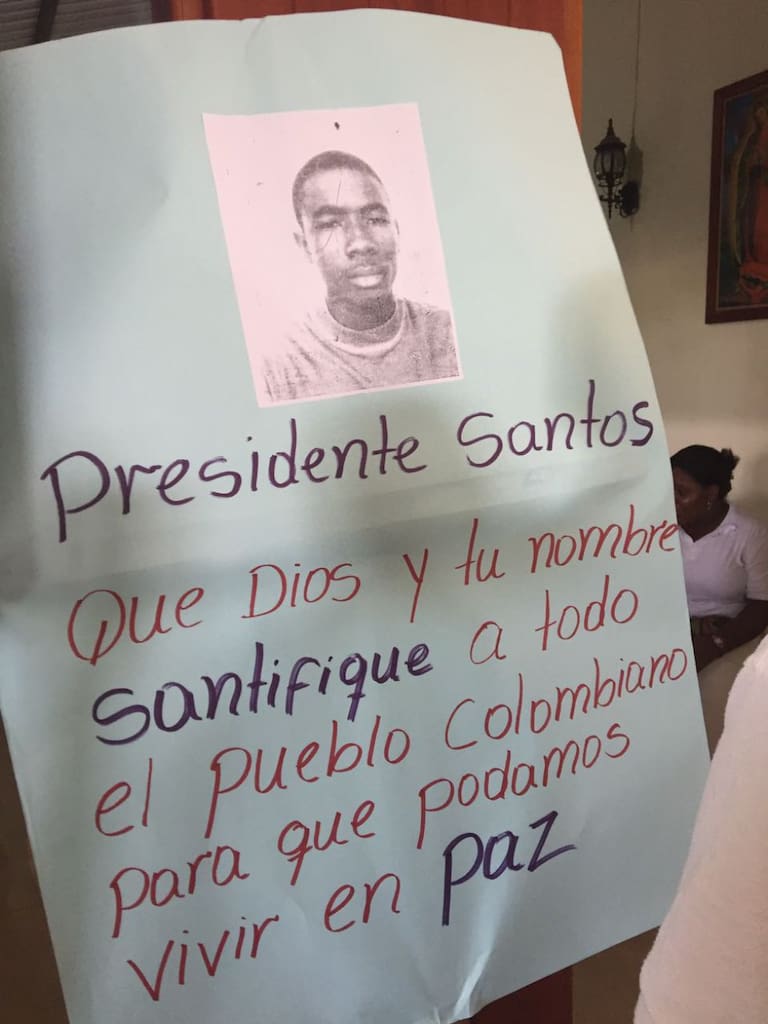 Presidente Santos
Que Dios y tu nombre
santifique a todo
el pueblo Colombiano
para que podamos
vivir en paz